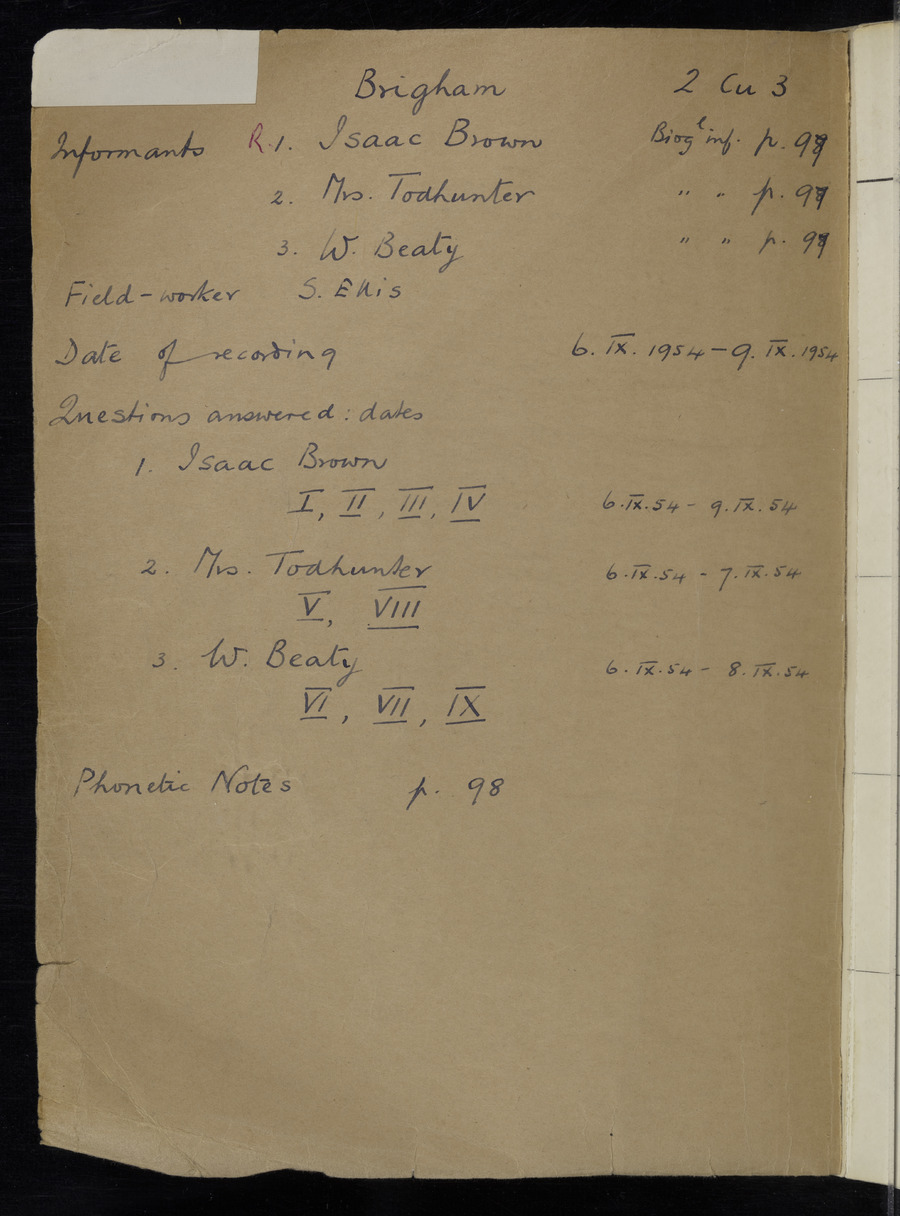 Brigham 2 Cu 3
Informants R.1. Isaac Brown Biogl inf. p.
2. Mrs. Todhunter " " p.
3. W. Beaty " " p.
Field-worker S. Ellis
Date of recording 6. IX. 1954 - 9. IX. 1954
Questions answered : dates
1. Isaac Brown
I, II, III, IV 6.IX.54 - 9.IX.54
2. Mrs. Todhunter 6.IX.54 - 7.IX.54
V, VIII
3. W. Beaty 6.IX.54 - 8.IX.54
VI, VII, IX
Phonetic Notes p. 98